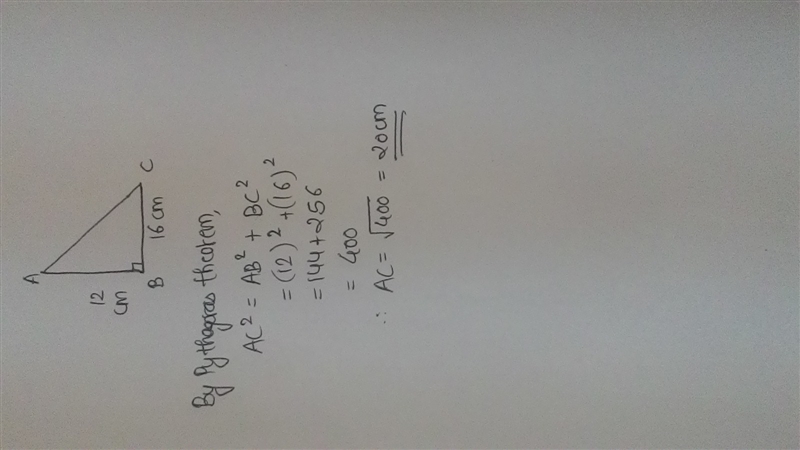 A
12
cm
B
16 cm
C
By Pythagoras theorem,
AC² = AB² + BC²
= (12)² + (16)²
= 144 + 256
= 400
∴ AC = √400 = 20 cm